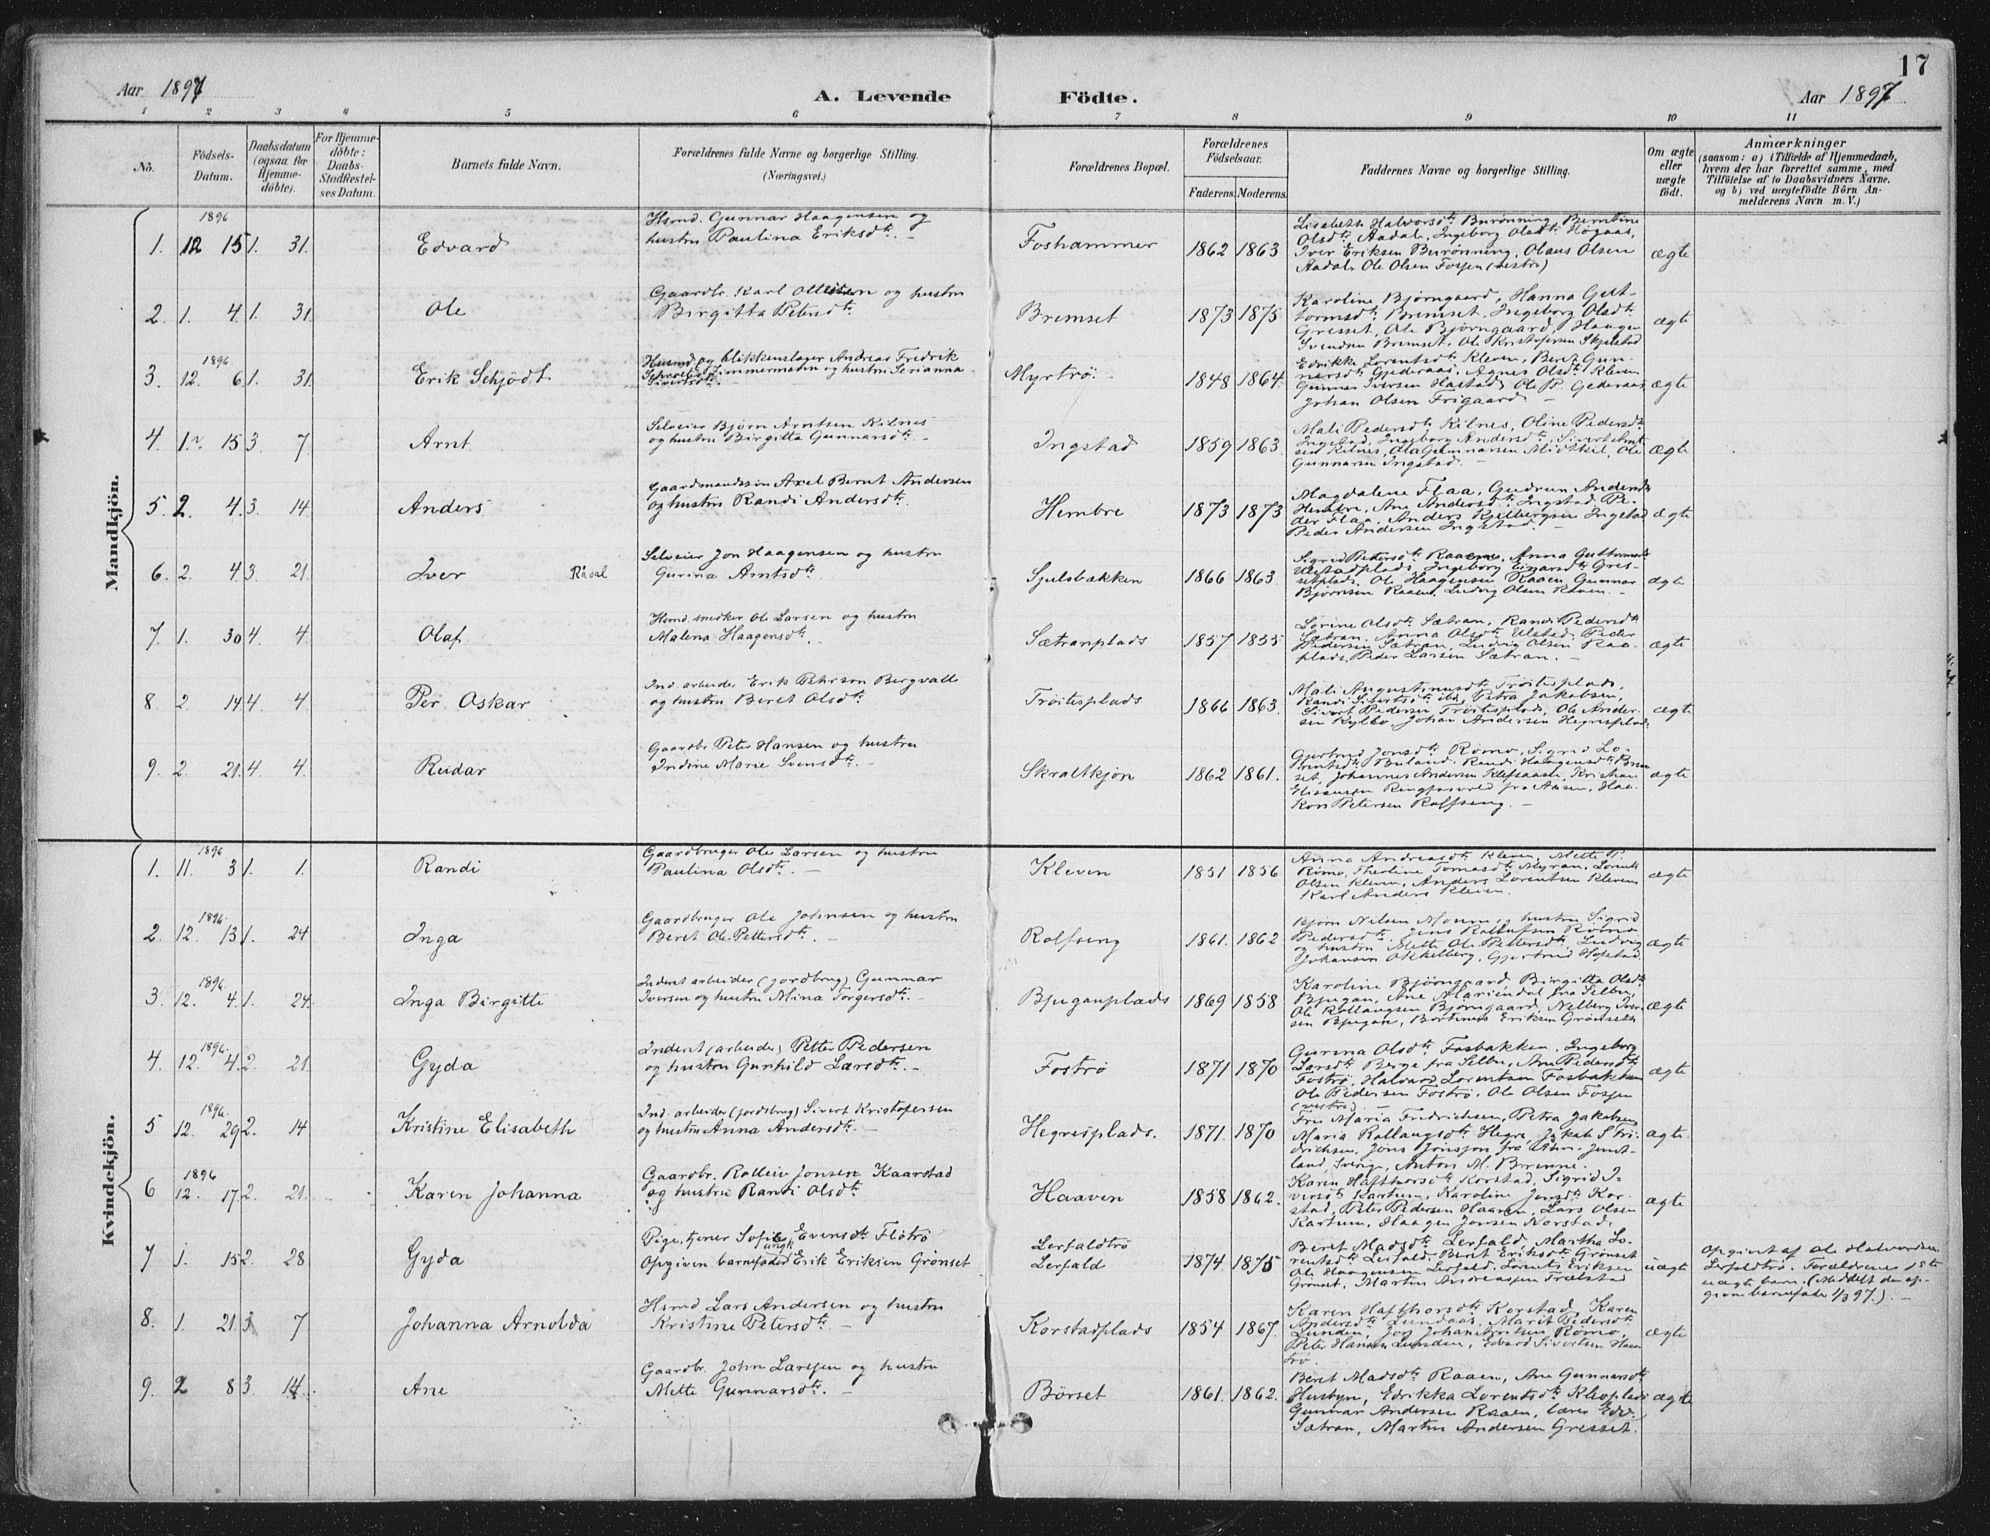 17
Aar 1897
A. Levende Födte.
Aar 1897
1 2 3 4 5 6 7 8 9 10 11
No.
Födsels-Datum.
Daabsdatum (ogsaa for Hjemme-döbte).
For Hjemme-döbte: Daabs-Stadfestelses Datum.
Barnets fulde Navn.
Forældrenes fulde Navne og borgerlige Stilling.
(Næringsvei.)
Forældrenes Bopæl.
Forældrenes Födselsaar.
Faderens. Moderens.
Faddernes Navne og borgerlige Stilling.
Om ægte eller uægte födt.
Anmærkninger
(saasom: a) i Tilfælde af Hjemmedaab,
hvem der har forrettet samme, med
Tilföielse af to Daabsvidners Navne,
og b) ved uægtefödte Börn An-
melderens Navn m. V.)
Mandkjön.
1. 1896 12 15 1. 31. Edvard
Hsmd. Gunnar Haagensen og
hustru Paulina Eriksdtr. –
Foshammer 1862 1863
Lisabeth Halvorsdtr. Burönning, Berntine
Olsdtr. Aadal, Ingeborg Olsdtr. Högaas,
Iver Eriksen Burönning, Olaus Olsen
Aadal, Ole Olsen Fosjen (vestre)
ægte
2. 1. 4. 1. 31. Ole
Gaardbr. Karl Ottesen og hustru
Birgitta Petersdtr.
Bremset 1873 1875
Karoline Bjørngaard, Hanna Gut-
tormsdtr. Bremset, Ingeborg Olsdtr.
Gresset, Ole Bjørngaard, Haagen
Svendsen Bremset, Ole Kristofersen Skjelstad
ægte
3. 1896 12. 6. 1. 31. Erik Schjödt
Husmd. og blikkenslager Andreas Fredrik
Zimmermann og hustru Serianna
Sivertsdtr. –
Myrtrö. – 1848 1864
Edrikke Lorentsdtr. Kleven, Beret Gun-
narsdtr. Gjederaas, Agnes Olsdtr. Kleven
Gunnar Iversen Hastad, Ole P. Gederaas,
Johan Olsen Frigaard. –
ægte
4. 15 3 7 Arnt
Selveier Björn Arntsen Kilnes
og hustru Birgitta Gunnarsdtr. –
Ingstad 1859 1863
Mali Pedersdtr. Kilnes, Oline Pedersdtr.
Ingstad, Ingeborg Andersdtr., Sivert Arnt-
sen Kilnes, Ola Gunnarsen Midtkil, Ole
Gunnarsen Ingstad. –
ægte
5. 2. 4. 3. 14. Anders
Gaardmandssön Axel Bernt Andersen
og hustru Randi Andersdtr.
Hembre 1873 1873
Magdalene Flaa, Gudrun Andersdtr
Hembre, Ane Andersdtr. Ingstad, Pe-
der Flaa, Anders Kjelbergsen Ingstad
Peder Andersen Ingstad. –
ægte
6. 2. 4. 3. 21. Iver
Selveier Jon Haagensen og hustru
Gurina Arntsdtr.
Sjulsbakken 1866 1863
Sigrid Pedersdtr. Raaen, Anna Guttormsdtr
Ulstadplads, Ingeborg Einarsdtr. Gres-
setplads, Ole Haagensen Raaen, Gunnar
Björnsen Raaen, Ludvig Olsen Raaen. –
ægte
7. 1. 30 4. 4. Olaf
Hsmd. snedker Ole Larsen og hustru
Malena Haagensdtr.
Sætranplads 1857 1855
Lorine Olsdtr. Sætran, Randi Pedersdtr
Sætran, Anna Olsdtr. Ulstad, Peder
Pedersen Sætran, Ludvig Olsen Raa-
plads, Peder Larsen Sætran. –
ægte
8. 2 14 4. 4. Per Oskar
Ind. arbeider Erik Pehrson Bergvall
og hustru Beret Olsdtr.
Tröitesplads 1866 1863.
Mali Augustinusdtr. Tröitesplads,
Randi Sivertsdtr. ibd., Petra Jakobsen,
Sivert Pedersen Tröitesplads, Ole Ander-
sen Kylbo, Johan Andersen Hegresplads.
ægte
9. 2. 21. 4. 4. Reidar
Gaardbr. Peter Hansen og hustru
Indine Marie Svensdtr. –
Skraltkjön 1862 1861.
Gjertrud Jonsdtr. Römo, Sigrid Lo-
rentsdtr. Buland, Randi Haagensdtr. Brem-
set, Johannes Andersen Klefsaasen, Kristian
fra Aasen, Haa-
kon Petersen Rolfseng. –
ægte
Kvindekjön.
1. 1896 11. 3 1. 1. Randi
Gaardbruger Ole Larsen og hustru
Paulina Olsdtr. –
Kleven 1851 1856
Anna Andreasdtr. Kleven, Mette P.
Römo, Theoline Tomasdtr. Myran, Lorents
Olsen Kleven, Anders Lorentsen Kleven
Karl Anders Kleven.
ægte
2. 1896. 12. 13 1. 24 Inga
Gaardbruger Ole Johnsen og hustru
Beret Ole Pettersdtr. –
Rolfseng 1861. 1862
Björn Nilsen Moum og hustru Sigrid
Pedersdtr., Jens Rollaufsen Römo
og hustru Mette Ole Pettersdtr., Ludvig
Johansen Okkelberg, Gjertrud Hofstad.
ægte
3. 1896. 12. 4. 1. 24. Inga Birgitte
Inderst arbeider (jordbrug) Gunnar
Iversen og hustru Mina Torgersdtr. –
Bjuganplads 1869 1858
Karoline Bjørngaard, Birgitta Olsdtr.
Bjugan, Ane Mariendal fra Selbu,
Ole Rollaugsen Bjørngaard, Nelberg Iver-
sen Bjugan, Bortinus Eriksen Grönseth
ægte
4. 1896. 12. 4. 2. 21. Gyda
Inderst (arbeider) Petter Pedersen
og hustru Gunhild Larsdtr. –
Foströ 1871 1870
Gurina Olsdtr. Fosbakken, Ingeborg
Larsdtr. Berge fra Selbu, Ane Pedersdtr.
Foströ, Halvard Lorentsen Fosbakken
Ole Pedersen Foströ, Ole Olsen Fosjen
(vestre). –
ægte
5 1896. 12. 29 2. 14 Kristine Elisabeth
Ind. arbeider (jordsbrug) Sivert Kristofersen
og hustru Anna Andersdtr. –
Hegresplads. 1871. 1870
Fru Maria Fredrichsen, Petra Jakobsen,
Maria Rollaugsdtr. Hegre, Jakob S. Fri-
drichsen, Jöns Jönsson fra Jemt-
land, Sverige, Anton M. Brenne.
ægte.
6 1896 12. 17 2. 21. Karen Johanna
Gaardbr. Rolleiv Jonsen Kaarstad
og hustru Randi Olsdtr.
Haaven 1858 1862.
Karen Hafthorsdtr. Korstad, Sigrid I-
versdtr. Kartum, Karoline Jonsdtr. Kor-
stad, Peter Pedersen Haaven, Lars Olsen
Kartum, Haagen Jonsen Korstad.
ægte
7 1. 15 2. 28 Gyda
Pige, tjener Sofie Evensdtr. Flötrö
Opgiven barnefader ungk. Erik Eriksen Grönset
Lerfaldtrö
Lerfald
1874 1875
Beret Madsdtr. Lerfald, Martha Lo-
rentsdtr. Lerfald, Beret Eriksdtr. Grönset
Ole Haagensen Lerfald, Lorents Eriksen
Grönset, Martin Andreassen Trælstad
uægte
Opgivet af Ole Halvardsen
Lerfaldtrö. Forældrenes 1ste
uægte barn. (Meddelt den op-
givne barnefader 1/3 97.). –
8. 1. 21. 3 7 Johanna Arnolda
Hsmd Lars Andersen og hustru
Kristine Petersdtr. –
Korstadplads 1854 1867.
Karen Hafthorsdtr. Korstad, Karen
Andersdtr. Lundaas, Marit Pedersdtr.
Lunden, Römo,
Peter Hansen Lunden, Edvard Sivertsen
trö.
ægte
9. 2 8 3. 14. Ane
Gaardbr. John Larssen og hustru
Mette Gunnarsdtr. –
Börset 1861. 1862.
Beret Madsdtr. Raaen, Ane Gunnarsdtr
Husbyn, Edrikka Lorentsdtr. Klevplads
Gunnar Andersen Raaen, lærer Edv.
Sætran, Martin Andersen Gresset.
ægte